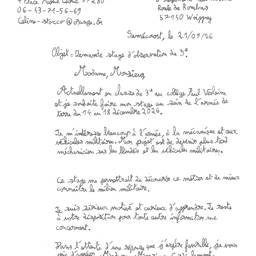 06-13-71-56-69
Route de Rombas
57140 Woippy
Objet : Demande stage d'observation de 3e
Madame, Monsieur
Actuellement en classe de 3e au collège Paul Verlaine
et je souhaite faire mon stage au sein de l'armée de
terre du 14 au 18 décembre 2026.
Je m'intéresse beaucoup à l'armée, à la mécanique et aux
véhicules militaires. Mon projet est de devenir plus tard
mécanicien sur les blindés et les véhicules militaires.
Ce stage me permettrait de découvrir ce métier et de mieux
connaître le milieu militaire.
Je suis sérieux motivé et curieux d'apprendre. Je reste
à votre disposition pour toute autre information me
concernant.
Dans l'attente d'une réponse que j'espère favorable, je vous